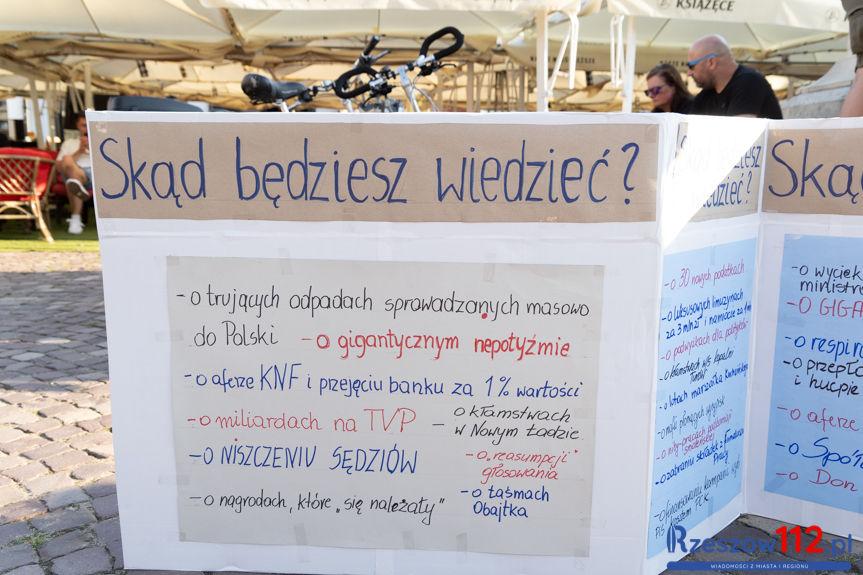 KSIĄŻĘCE
Skąd będziesz wiedzieć?
- o trujących odpadach sprowadzanych masowo
do Polski - o gigantycznym nepotyźmie
- o aferze KNF i przejęciu banku za 1% wartości
- o miliardach na TVP
- o kłamstwach
w Nowym Ładzie
- o NISZCZENIU SĘDZIÓW
- o „reasumpcji”
głosowania
- o nagrodach, które „się należały”
- o taśmach
Obajtka
wiedzieć?
- o 30 nowych podatkach
- o luksusowych limuzynach
za 3 mln zł i namiocie za
- o podwyżkach dla polityków
- o kłamstwach ws kopalni
Turów
- o lotach marszałka Kuchcińskiego
- o zabraniu składek z Funduszu
Pracy
kampanii
PiS kosztem PCK
Ską
- o wyciek
ministra
- O GIGA
- o respira
- o przepł
i hucpie
- o aferze
- o Spół
- o Don
Rzeszów112.pl
WIADOMOŚCI Z MIASTA I REGIONU